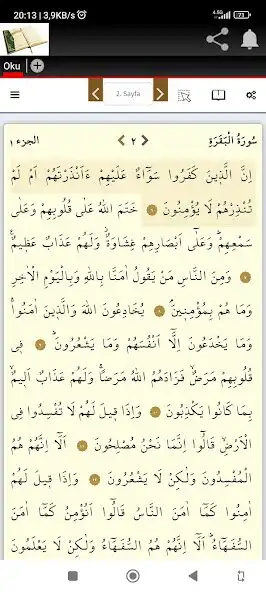 20:13 | 3,9KB/s
4.5G 21
Oku
2. Sayfa
الجزء ١ ٢ سُورَةُ الْبَقَرَةِ
اِنَّ الَّذ۪ينَ كَفَرُوا سَوَٓاءٌ عَلَيْهِمْ ءَاَنْذَرْتَهُمْ اَمْ لَمْ
تُنْذِرْهُمْ لَا يُؤْمِنُونَ ٦ خَتَمَ اللّٰهُ عَلٰى قُلُوبِهِمْ وَعَلٰى
سَمْعِهِمْۜ وَعَلٰٓى اَبْصَارِهِمْ غِشَاوَةٌۘ وَلَهُمْ عَذَابٌ عَظ۪يمٌ۟
٧ وَمِنَ النَّاسِ مَنْ يَقُولُ اٰمَنَّا بِاللّٰهِ وَبِالْيَوْمِ الْاٰخِرِ
وَمَا هُمْ بِمُؤْمِن۪ينَۢ ٨ يُخَادِعُونَ اللّٰهَ وَالَّذ۪ينَ اٰمَنُواۚ
وَمَا يَخْدَعُونَ اِلَّٓا اَنْفُسَهُمْ وَمَا يَشْعُرُونَۜ ٩ ف۪ي
قُلُوبِهِمْ مَرَضٌۙ فَزَادَهُمُ اللّٰهُ مَرَضاًۚ وَلَهُمْ عَذَابٌ اَل۪يمٌۙ
بِمَا كَانُوا يَكْذِبُونَ ١٠ وَاِذَا ق۪يلَ لَهُمْ لَا تُفْسِدُوا فِي
الْاَرْضِۙ قَالُٓوا اِنَّمَا نَحْنُ مُصْلِحُونَ ١١ اَلَٓا اِنَّهُمْ هُمُ
الْمُفْسِدُونَ وَلٰكِنْ لَا يَشْعُرُونَ ١٢ وَاِذَا ق۪يلَ لَهُمْ
اٰمِنُوا كَمَٓا اٰمَنَ النَّاسُ قَالُٓوا اَنُؤْمِنُ كَمَٓا اٰمَنَ
السُّفَهَٓاءُۜ اَلَٓا اِنَّهُمْ هُمُ السُّفَهَٓاءُ وَلٰكِنْ لَا يَعْلَمُونَ